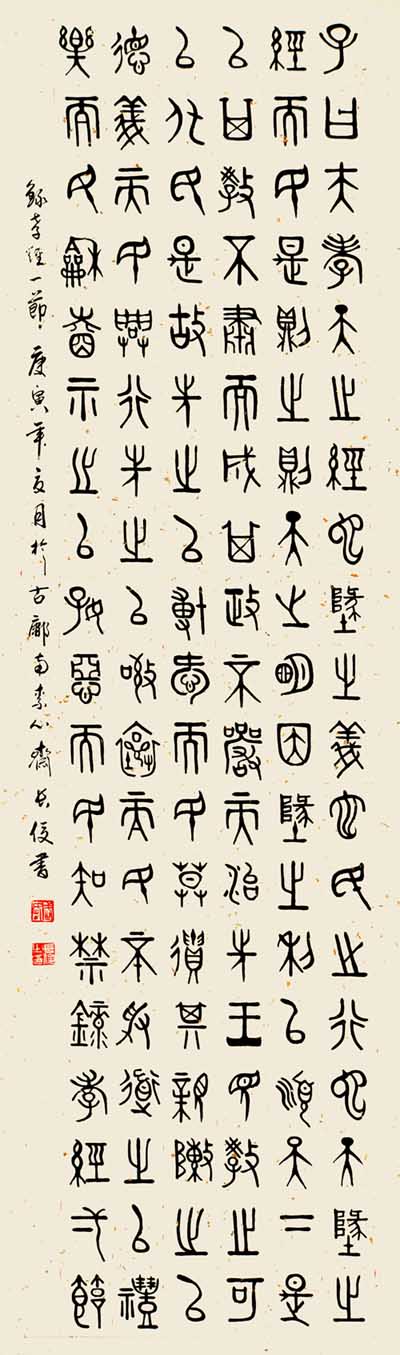 子曰夫孝天之經也墬之義也民之行也天墬之
經而民是則之則天之明因墬之利以順天下是
以其教不肅而成其政不嚴而治先王見教之可
以化民是故先之以博愛而民莫遺其親陳之以
德義而民興行先之以敬讓而民不爭導之以禮
樂而民龢睦示之以好惡而民知禁錄孝經弌節
錄孝經一節 庚寅年夏月於古南素心齋俊書